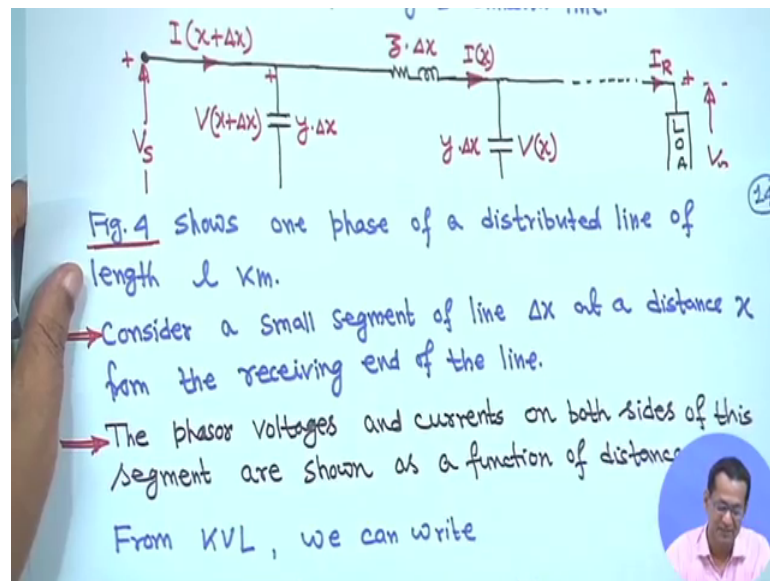 I(x+Δx) z·Δx I(x) I_R
+ + + -
V(x+Δx) y·Δx y·Δx V(x)
V_S LOA V_n
Fig. 4 shows one phase of a distributed line of
length l Km.
Consider a small segment of line Δx at a distance x
from the receiving end of the line.
The phasor voltages and currents on both sides of this
segment are shown as a function of distance
From KVL, we can write